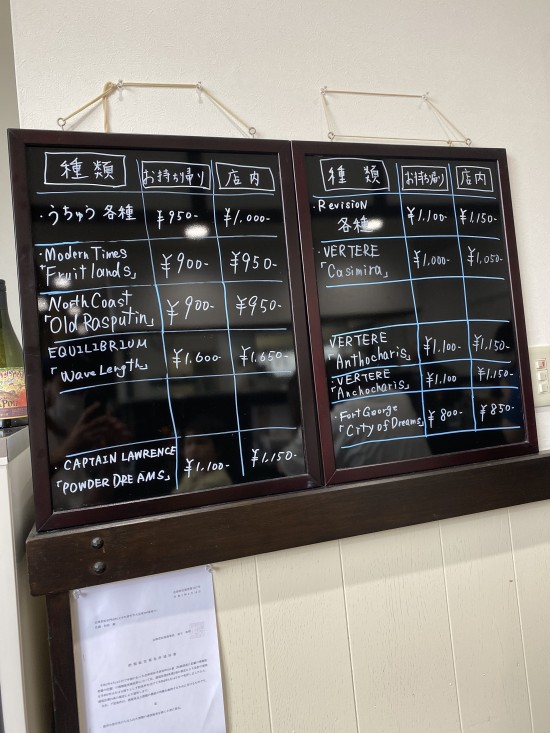 種類 お持ち帰り 店内
・うちゅう 各種 ¥950- ¥1.000-
・Modern Times
「Fruitlands」 ¥900- ¥950-
・North Coast
「Old Rasputin」 ¥900- ¥950-
EQUILIBRIUM
「Wave Length」 ¥1.600- ¥1.650-
・CAPTAIN LAWRENCE
「POWDER DREAMS」 ¥1.100- ¥1.150-
種類 お持ち帰り 店内
・Revision
各種 ¥1.100- ¥1.150-
・VERTERE
「Casimira」 ¥1,000- ¥1,050-
VERTERE
「Anthocharis」 ¥1.100- ¥1.150-
・VERTERE
「Anchocharis」 ¥1.100 ¥1.150-
・Fort George
「City of Dreams」 ¥800- ¥850-